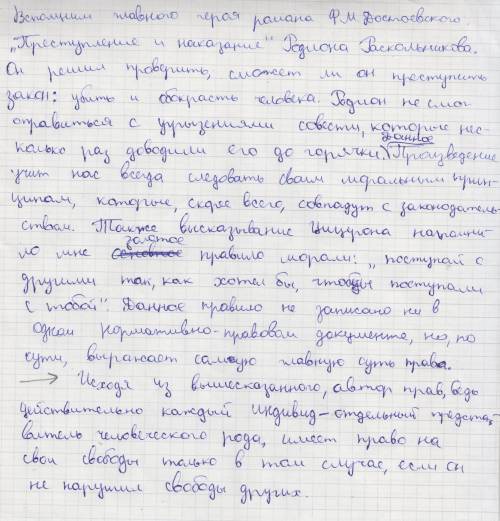 Вспомним главного героя романа Ф.М. Достоевского
„Преступление и наказание" Родиона Раскольникова.
Он решил проверить, сможет ли он преступить
закон: убить и обокрасть человека. Родион не смог
справиться с угрызениями совести, которые нес-
колько раз доводили его до горячки. Данное Произведение
учит нас всегда следовать своим моральным прин-
ципам, которые, скорее всего, совпадут с законодатель-
ством. Также высказывание Цицерона напомни-
ло мне золотое правило морали: „поступай с
другими так, как хотел бы, чтобы поступали
с тобой". Данное правило не записано ни в
одном нормативно-правовом документе, но, по
сути, выражает самую главную суть права.
→ Исходя из вышесказанного, автор прав, ведь
действительно каждый индивид – отдельный предста-
витель человеческого рода, имеет право на
свои свободы только в том случае, если он
не нарушил свободы других.